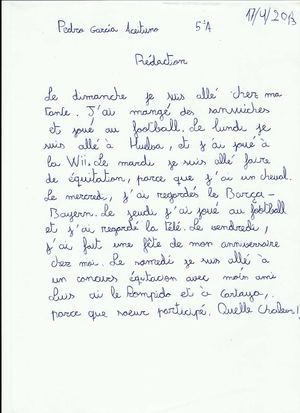 17/4/2013
Pedro García Aceituno 5ºA
Rédaction
Le dimanche je suis allé chez ma
tante. J'ai mangé des sanwiches
et joué au football. Le lundi je
suis allé à Huelva, et j'ai joué à
la Wii. Le mardi je suis allé faire
de équitation, parce que j'ai un cheval.
Le mercredi, j'ai regardés le Barça-
Bayern. Le jeudi j'ai joué au football
et j'ai regardé la télé. Le vendredi,
j'ai fait une fête de mon anniversaire
chez moi. Le samedi je suis allé à
un concurs équitacion avec moin ami
Luis ai le Rompido et à Cartaya,
parce que soeur participé. Quelle Chaleur!